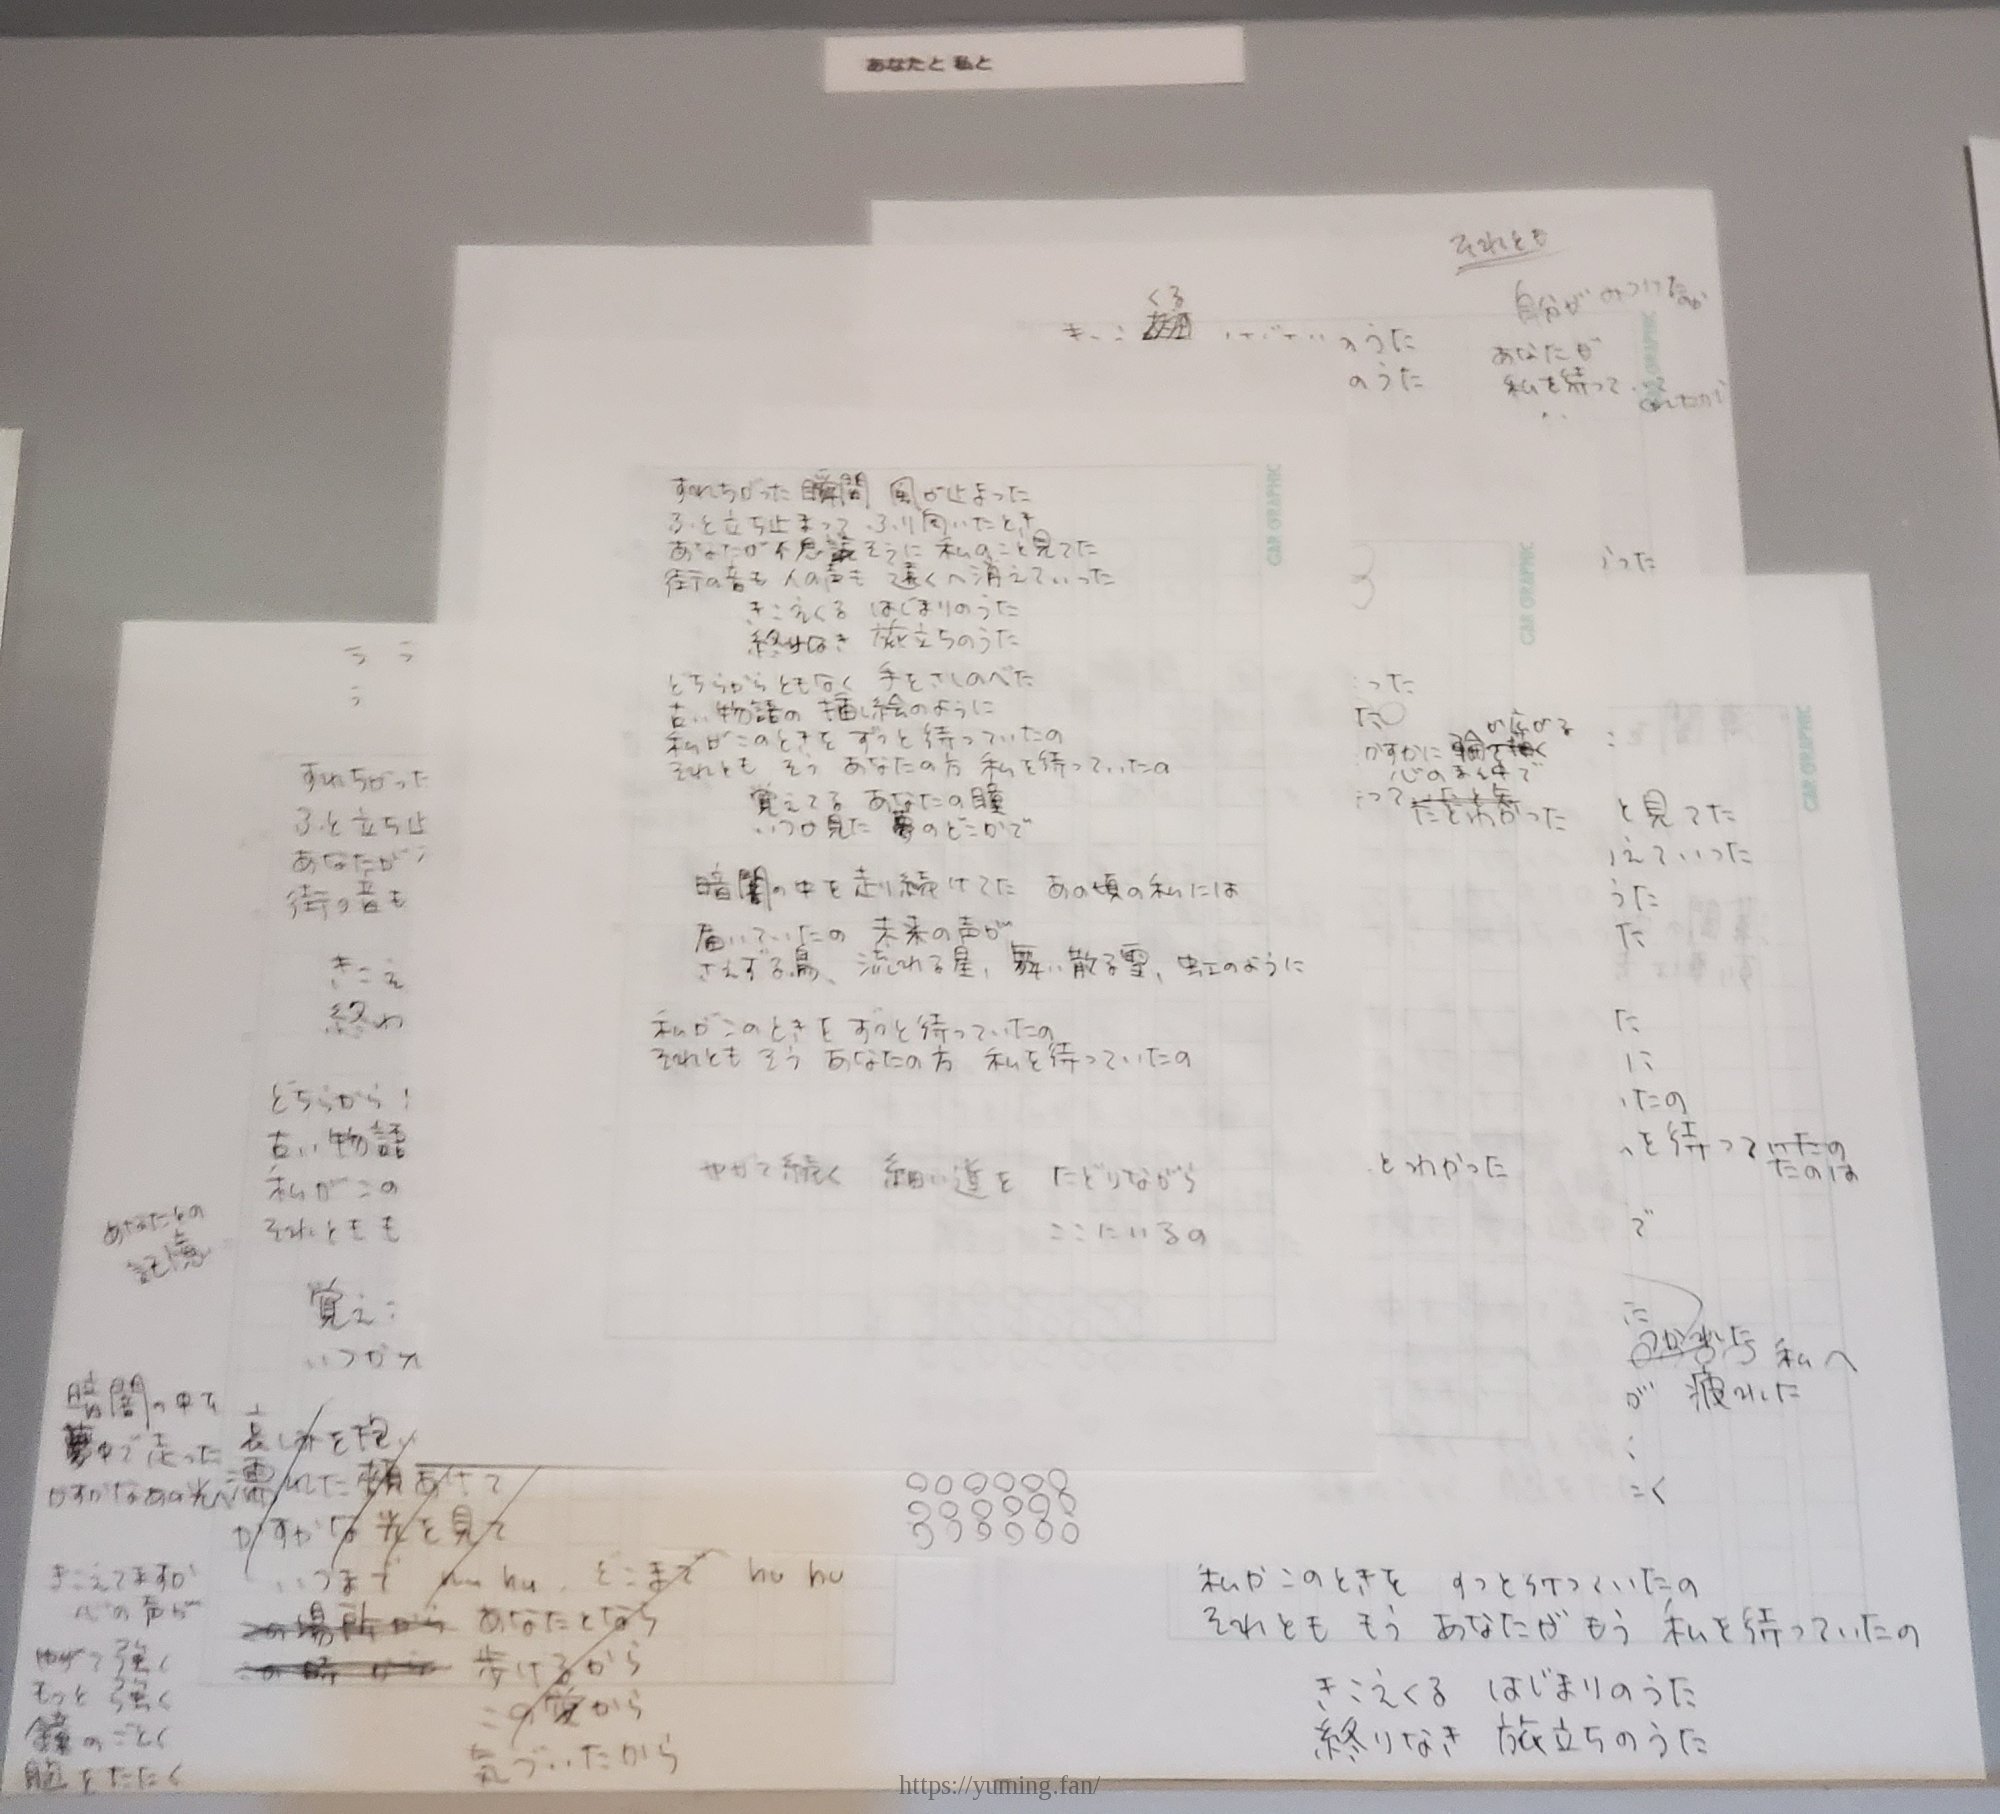 あなたと 私と
それとも
自分が みつけたのか
くる
のうた
あなたが
のうた
私を待って
CAR GRAPHIC
CAR GRAPHIC
CAR GRAPHIC
CAR GRAPHIC
すれちがった 瞬間 風が止まった
ふと立ち止まって ふり向いたとき
あなたが不思議そうに 私のこと見てた
街の音も 人の声も 遠くへ消えていった
きこえくる はじまりのうた
終りなき 旅立ちのうた
どちらからともなく 手をさしのべた
古い物語の 挿し絵のように
私がこのときを ずっと待っていたの
それとも そう あなたの方 私を待っていたの
覚えてる あなたの瞳
いつか見た 夢のどこかで
暗闇の中を走り続けてた あの頃の私には
届いていたの 未来の声が
さえずる鳥、流れる星、舞い散る雪、虹のように
私がこのときを ずっと待っていたの
それとも そう あなたの方 私を待っていたの
やがて続く 細い道を たどりながら
ここにいるの
ラ ラ
ラ
すれちがった
ふと立ち止
あなたが
街の音も
きこえ
終わ
どちらから
古い物語
私がこの
それとも も
覚え
いつか
あなたとの
記憶
暗闇の中で
夢中で走った
かすかなあの光へ
きこえてますか
心の声が
やがて強く
もっと 強く
鐘のごとく
胸をたたく
哀しみを抱い
濡れた頬あげて
かすかな光を見て
いつまで hu hu どこまで hu hu
この場所から あなたとなら
この時から 歩けるから
この愛から
気づいたから
った
った
た
が広がる
かすかに
心のまん中で
って
たとわかった
と見てた
えていった
うた
た
た
に
いたの
を待っていたの
たのは
とわかった
で
に
私へ
が 疲れた
こく
私がこのときを ずっと待っていたの
それとも もう あなたがもう 私を待っていたの
きこえくる はじまりのうた
終りなき 旅立ちのうた
https://yuming.fan/